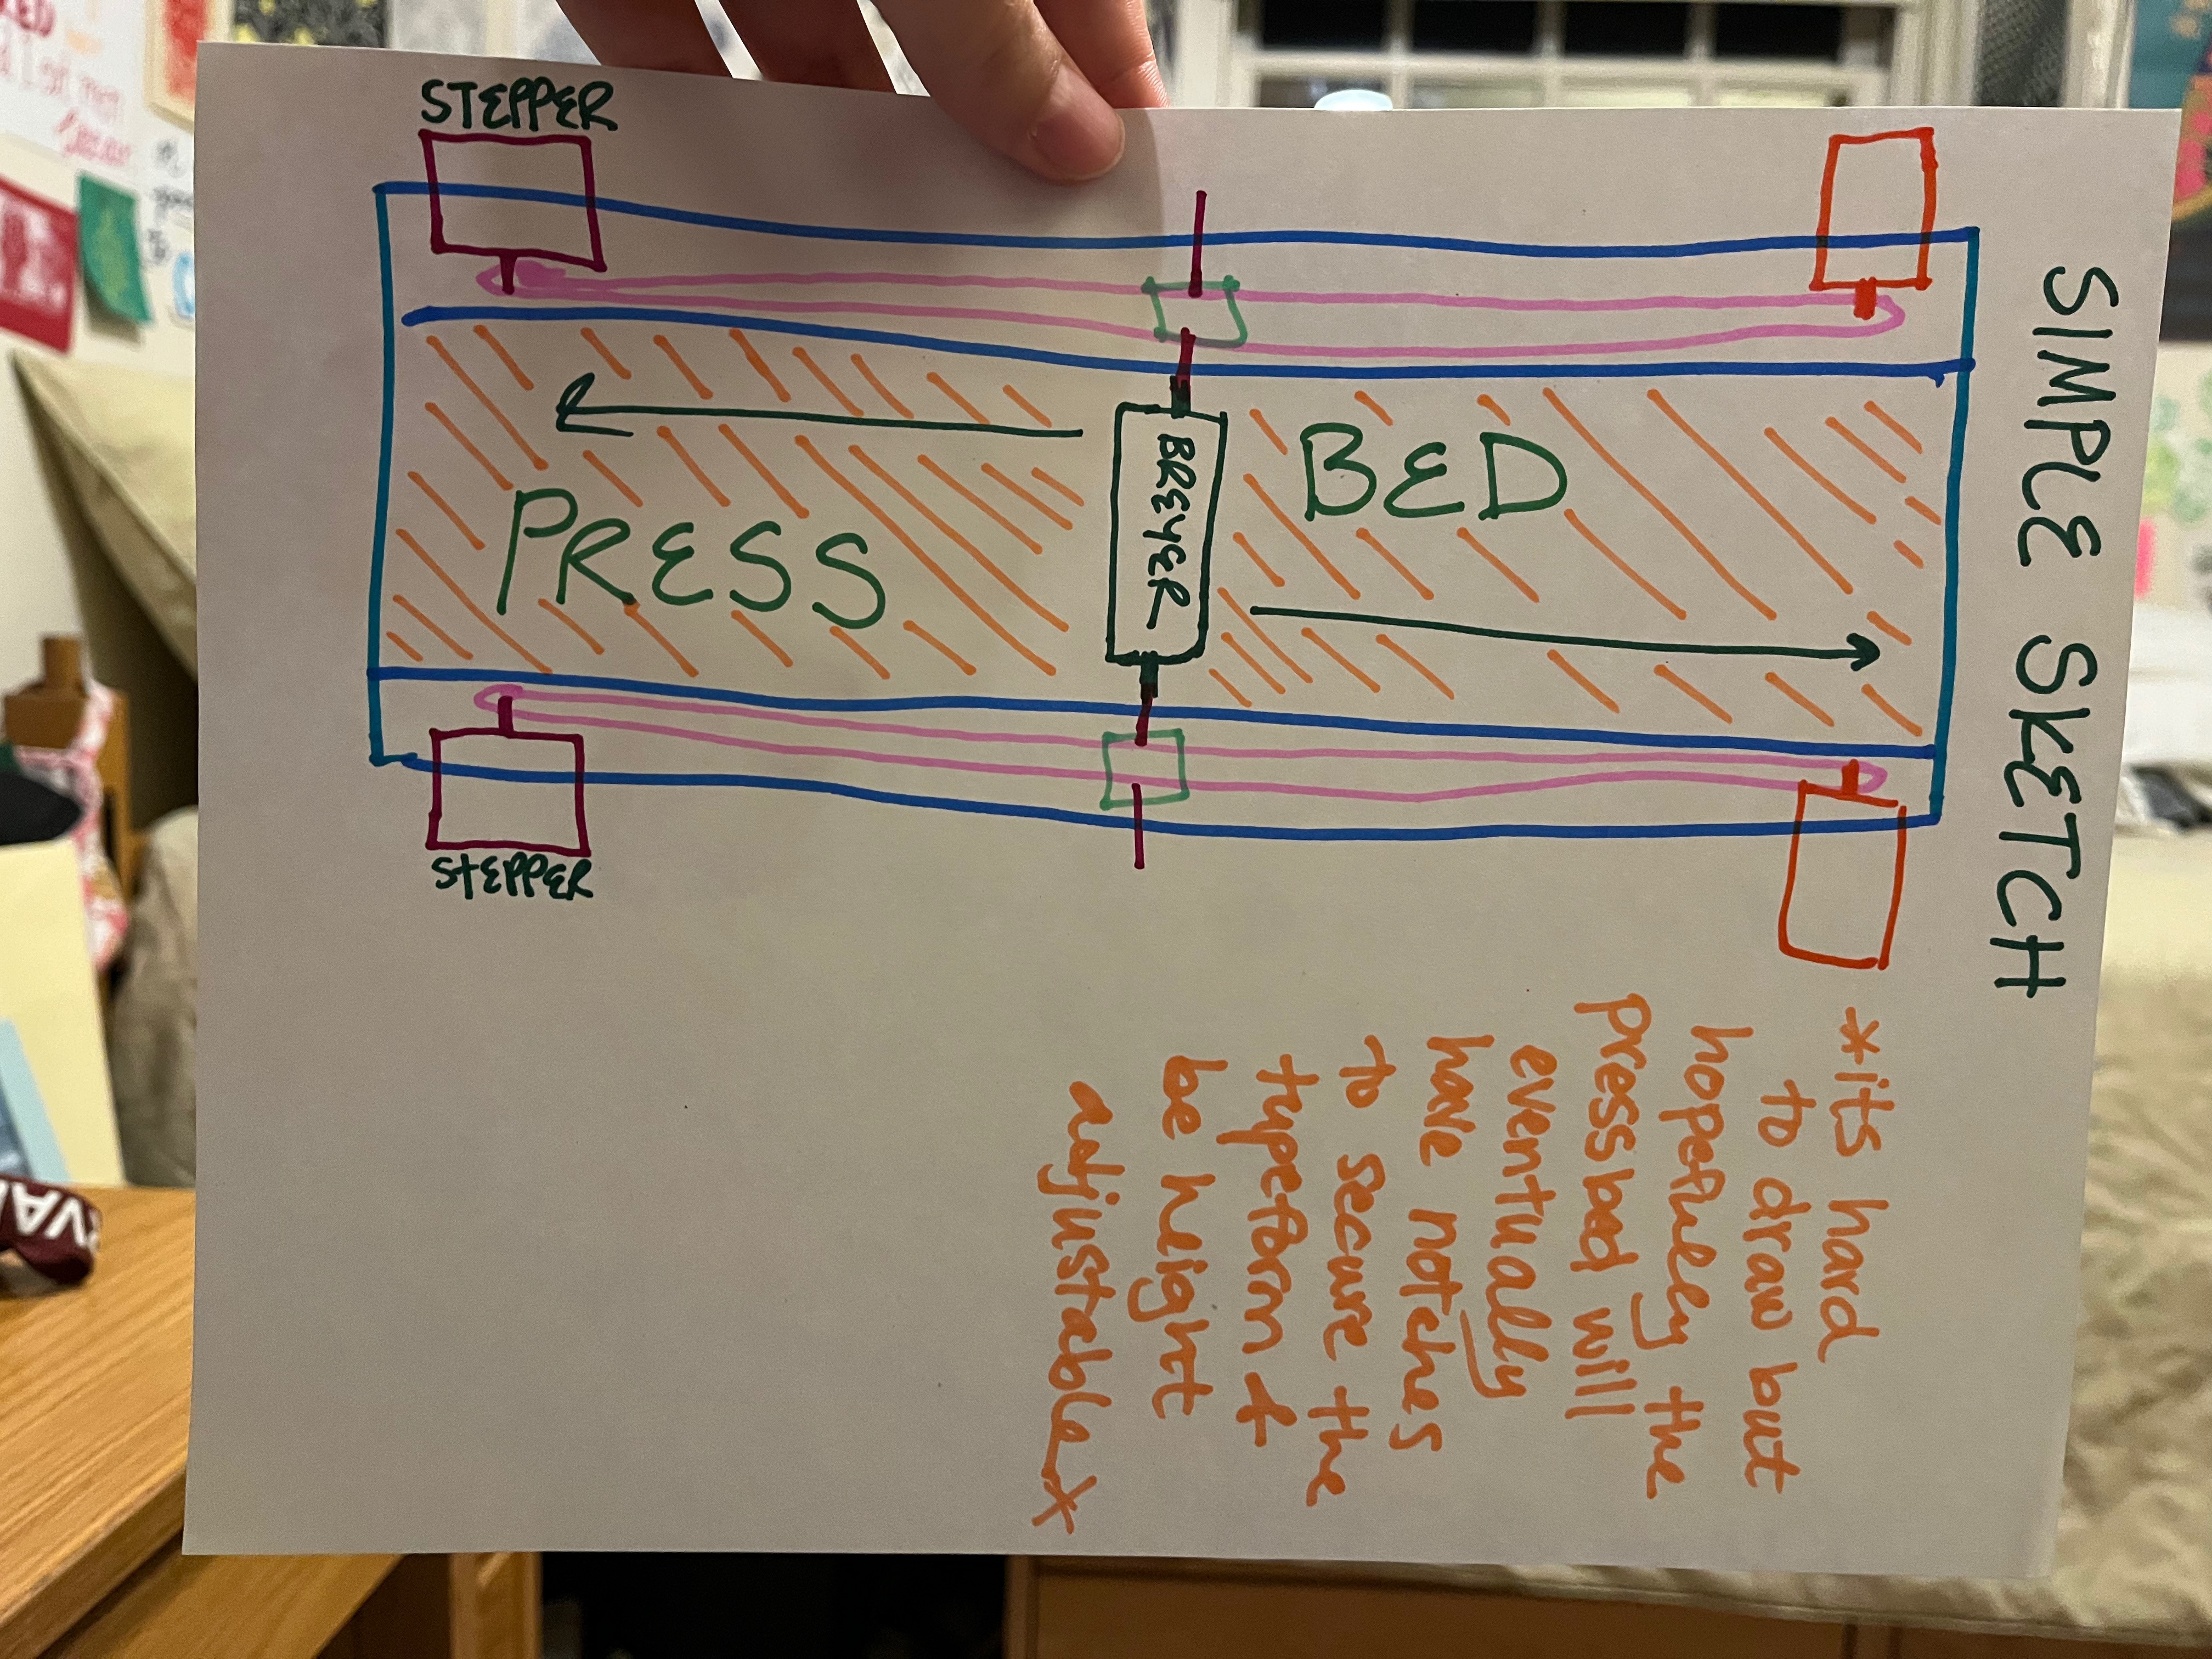 STEPPER
SIMPLE SKETCH
BED
BREYER
PRESS
STEPPER
*its hard
to draw but
hopefully the
pressbed will
eventually
have notches
to secure the
typeform &
be height
adjustable*
VA